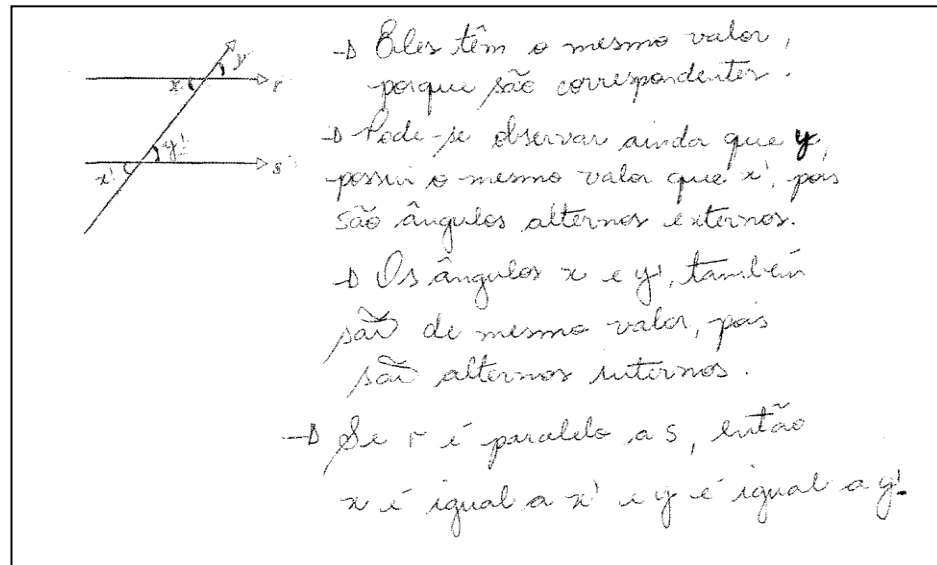 y
x
r
y'
x'
s
→ Eles têm o mesmo valor,
porque são correspondentes.
→ Pode-se observar ainda que y,
possui o mesmo valor que x', pois
são ângulos alternos externos.
→ Os ângulos x e y', também
são de mesmo valor, pois
são alternos internos.
→ Se r é paralelo a s, então
x é igual a x' e y é igual a y'.